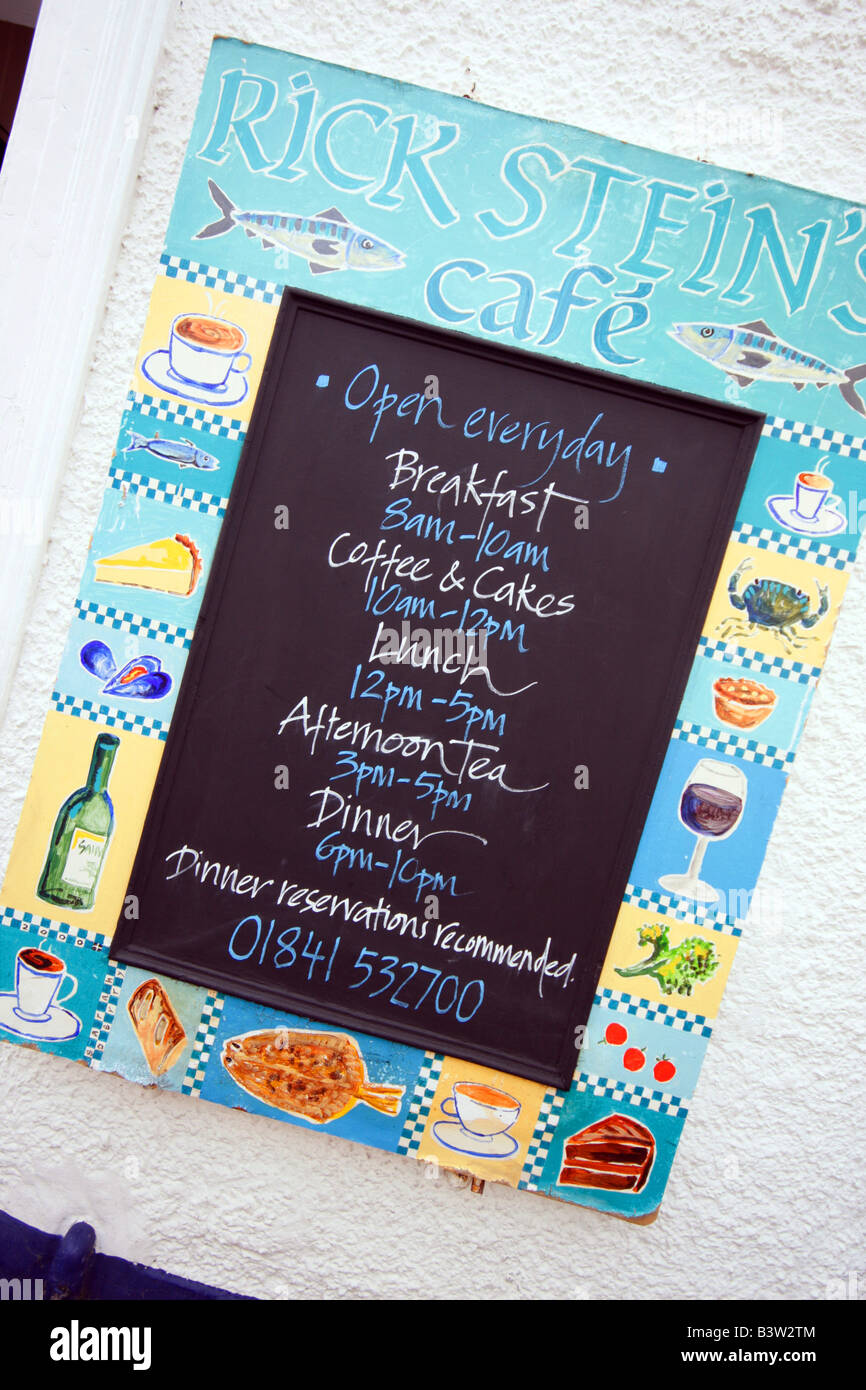 RICK STEIN'S
café
Open everyday
Breakfast
8am-10am
Coffee & Cakes
10am-12pm
Lunch
12pm-5pm
Afternoon Tea
3pm-5pm
Dinner
6pm-10pm
Dinner reservations recommended.
01841 532700
2000
alamy
Image ID: B3W2TM
www.alamy.com